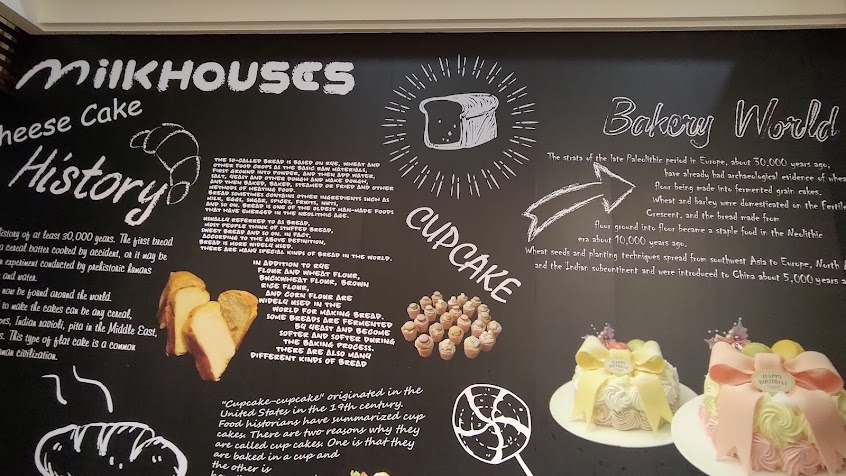 MilkHOUSES
heese Cake
History
istory of at least 30,000 years. The first bread
a cereal batter cooked by accident, or it may be
n experiment conducted by prehistoric humans
and water.
now be found around the world.
to make the cakes can be any cereal,
oes, Indian navioli, pita in the Middle East,
s. This type of flat cake is a common
uman civilization.
THE SO-CALLED BREAD IS BASED ON RYE, WHEAT AND
OTHER FOOD CROPS AS THE BASIC RAW MATERIALS,
FIRST GROUND INTO POWDER, AND THEN ADD WATER,
SALT, YEAST AND OTHER DOUGH AND MAKE DOUGH,
AND THEN BAKED, BAKED, STEAMED OR FRIED AND OTHER
METHODS OF HEATING FOOD.
BREAD SOMETIMES CONTAINS OTHER INGREDIENTS SUCH AS
MILK, EGGS, SUGAR, SPICES, FRUITS, NUTS,
AND SO ON. BREAD IS ONE OF THE OLDEST MAN-MADE FOODS
THAT HAVE EMERGED IN THE NEOLITHIC AGE.
USUALLY REFERRED TO AS BREAD,
MOST PEOPLE THINK OF STUFFED BREAD,
SWEET BREAD AND SO ON. IN FACT,
ACCORDING TO THE ABOVE DEFINITION,
BREAD IS MORE WIDELY USED.
THERE ARE MANY SPECIAL KINDS OF BREAD IN THE WORLD.
IN ADDITION TO RYE
FLOUR AND WHEAT FLOUR,
BUCKWHEAT FLOUR, BROWN
RICE FLOUR,
AND CORN FLOUR ARE
WIDELY USED IN THE
WORLD FOR MAKING BREAD.
SOME BREADS ARE FERMENTED
BY YEAST AND BECOME
SOFTER AND SOFTER DURING
THE BAKING PROCESS.
THERE ARE ALSO MANY
DIFFERENT KINDS OF BREAD
CUPCAKE
"Cupcake-cupcake" originated in the
United States in the 19th century.
Food historians have summarized cup
cakes. There are two reasons why they
are called cup cakes. One is that they
are baked in a cup and
the other is
Bakery World
The strata of the late Paleolithic period in Europe, about 30,000 years ago,
have already had archaeological evidence of whea
flour being made into fermented grain cakes.
Wheat and barley were domesticated on the Fertile
Crescent, and the bread made from
flour ground into flour became a staple food in the Neolithic
era about 10,000 years ago.
Wheat seeds and planting techniques spread from southwest Asia to Europe, North A
and the Indian subcontinent and were introduced to China about 5,000 years a
HAPPY
BIRTHDAY
HAPPY
BIRTHDAY